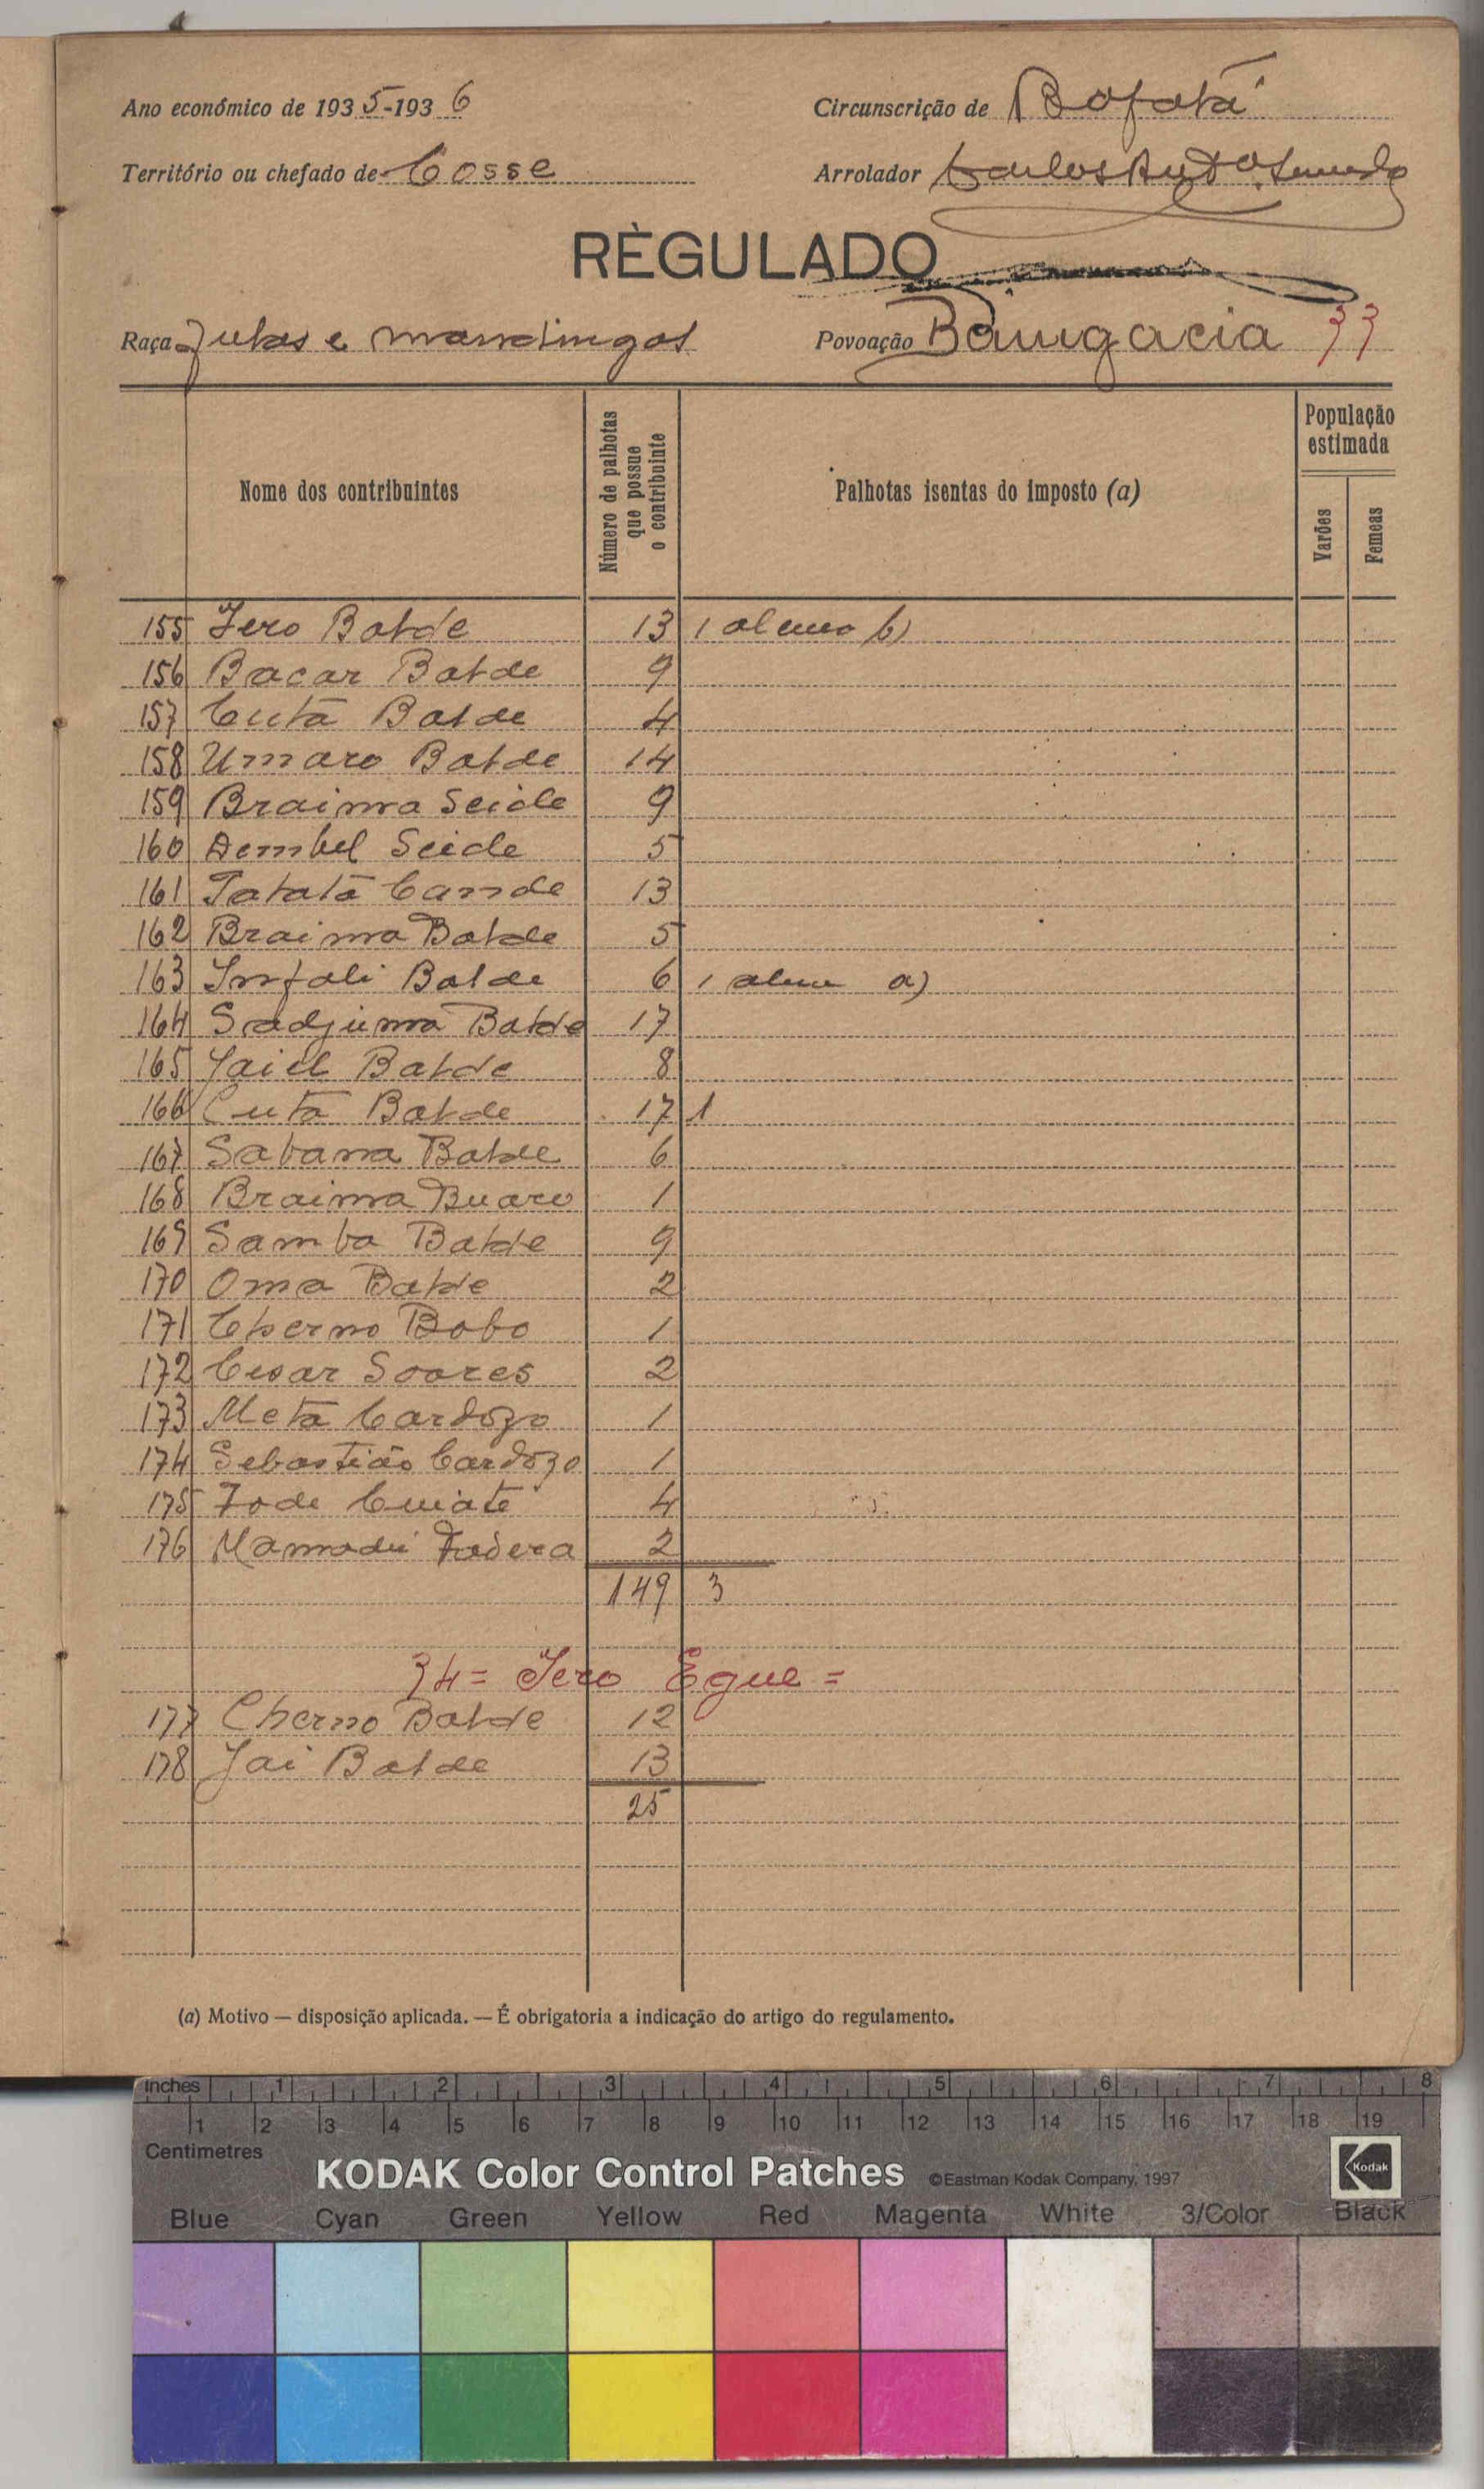 Ano económico de 1935-1936
Circunscrição de Bafatá
Território ou chefado de Cosse
Arrolador Carlos
RÈGULADO
Raça Fulas e mandingas
Povoação Bangacia 33
Nome dos contribuintes
Número de palhotas que possue o contribuinte
Palhotas isentas do imposto (a)
População estimada
Varões
Femeas
155 Iero Balde 13 1 alinea b)
156 Bacar Balde 9
157 Cutá Balde 4
158 Umaro Balde 14
159 Braima Seide 9
160 Dembel Seide 5
161 Tatatá Cande 13
162 Braima Balde 5
163 Infali Balde 6 1 alinea a)
164 Sadjuma Balde 17
165 Jaiel Balde 8
166 Cutá Balde 17 1
167 Sabana Balde 6
168 Braima Buaro 1
169 Samba Balde 9
170 Oma Balde 2
171 Cherno Bobo 1
172 Cesar Soares 2
173 Metá Cardozo 1
174 Sebastião Cardozo 1
175 Fode Cuiaté 4
176 Mamadú Fadera 2
149 3
34 = Iero Egue =
177 Cherno Balde 12
178 Jai Balde 13
25
(a) Motivo — disposição aplicada. — É obrigatoria a indicação do artigo do regulamento.
inches 1 2 3 4 5 6 7 8
1 2 3 4 5 6 7 8 9 10 11 12 13 14 15 16 17 18 19
Centimetres
KODAK Color Control Patches ©Eastman Kodak Company, 1997 Kodak
Blue Cyan Green Yellow Red Magenta White 3/Color Black